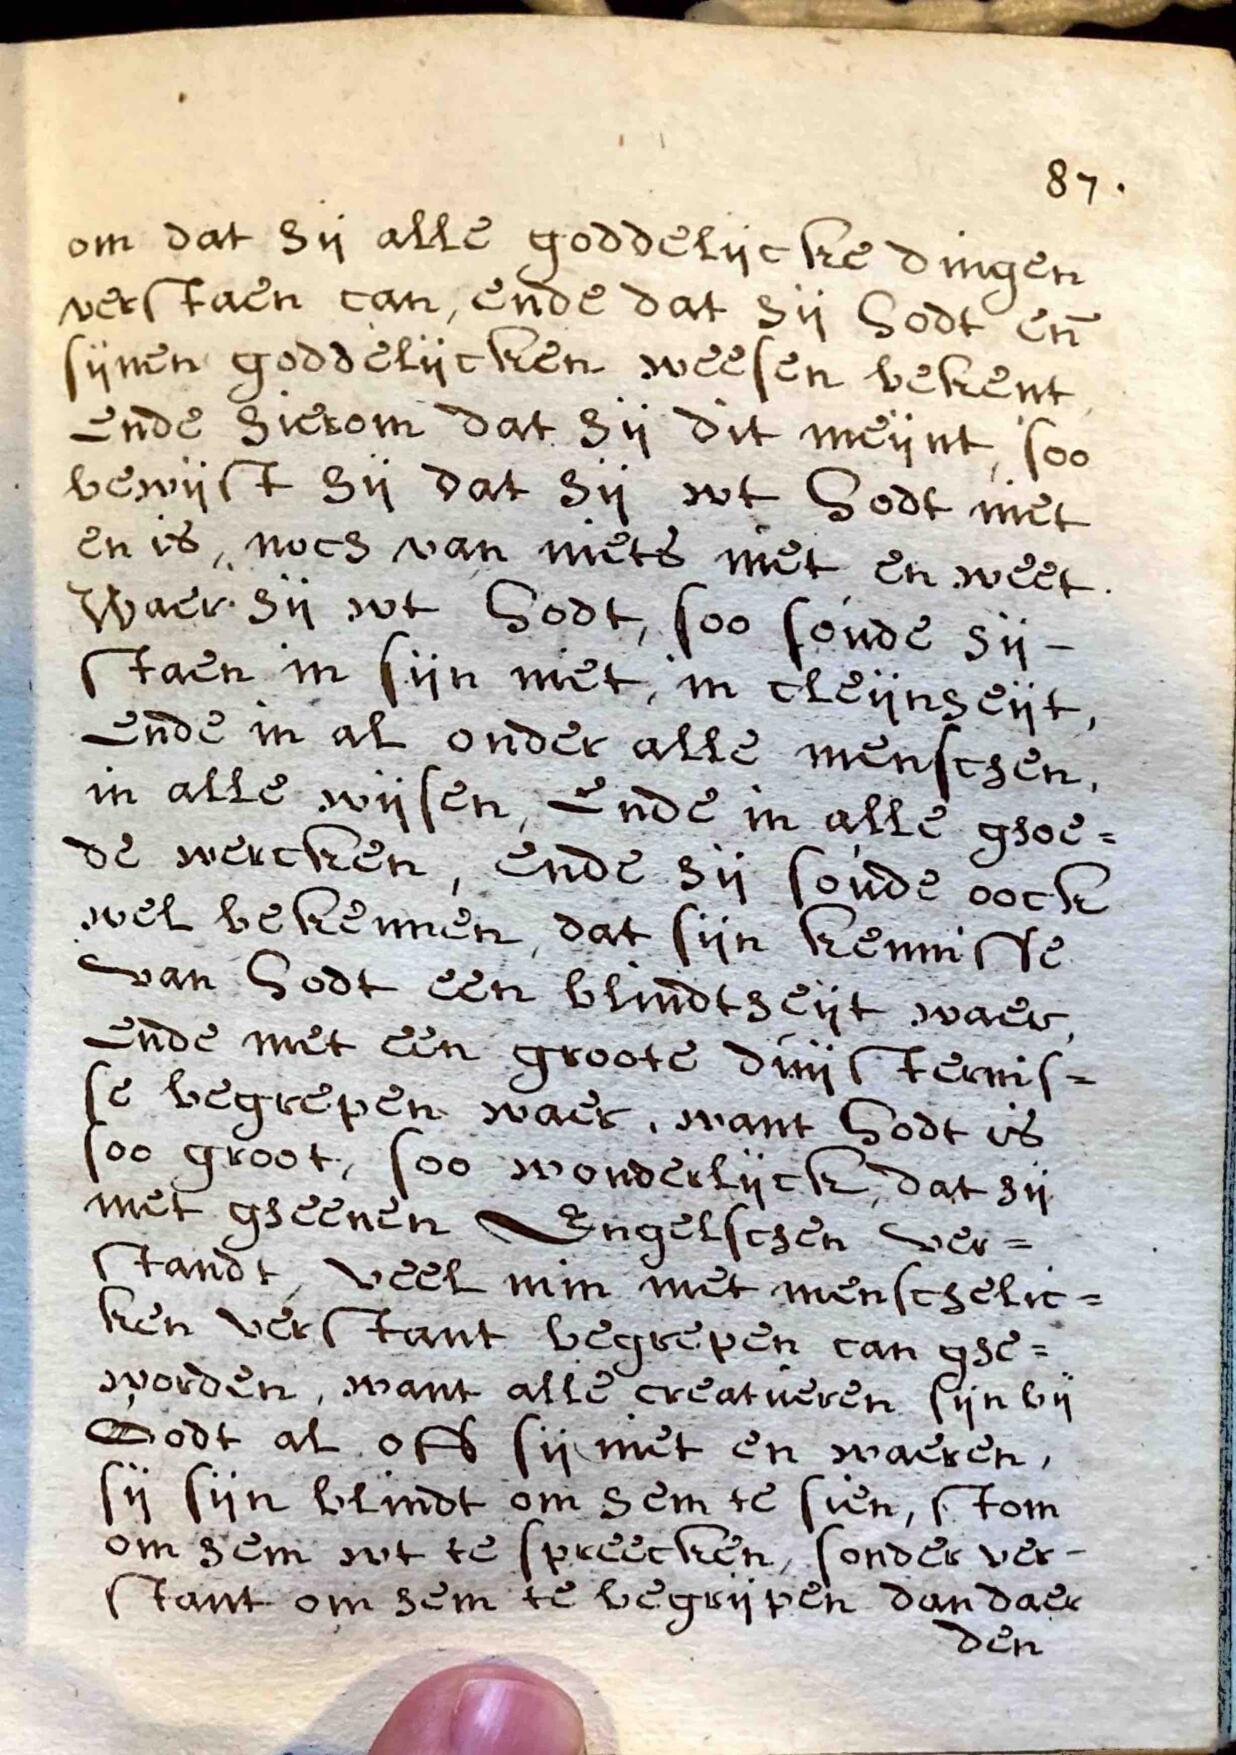 87.
om dat hij alle goddelijcke dingen
verstaen can, ende dat hij Godt en̄
sijnen goddelijcken weesen bekent,
Ende hierom dat hij dit meijnt, soo
bewijst hij dat hij wt Godt niet
en is, noch van niets niet en weet.
Waer hij wt Godt, soo soude hij -
staen in sijn niet, in cleijnheijt,
Ende in al onder alle menschen,
in alle wijsen, Ende in alle ghoe=
de wercken, ende hij soude oock
wel bekennen, dat sijn kennisse
van Godt een blindtheijt waer,
Ende met een groote duijsternis=
se begrepen waer, want Godt is
soo groot, soo wonderlijck, dat hij
met gheenen Engelschen ver=
standt, veel min met menschelic=
ken verstant begrepen can ghe=
worden, want alle creatueren sijn bij
Godt al ofs sij niet en waeren,
sij sijn blindt om hem te sien, stom
om hem wt te spreecken, sonder ver-
stant om hem te begrijpen dan daer
den